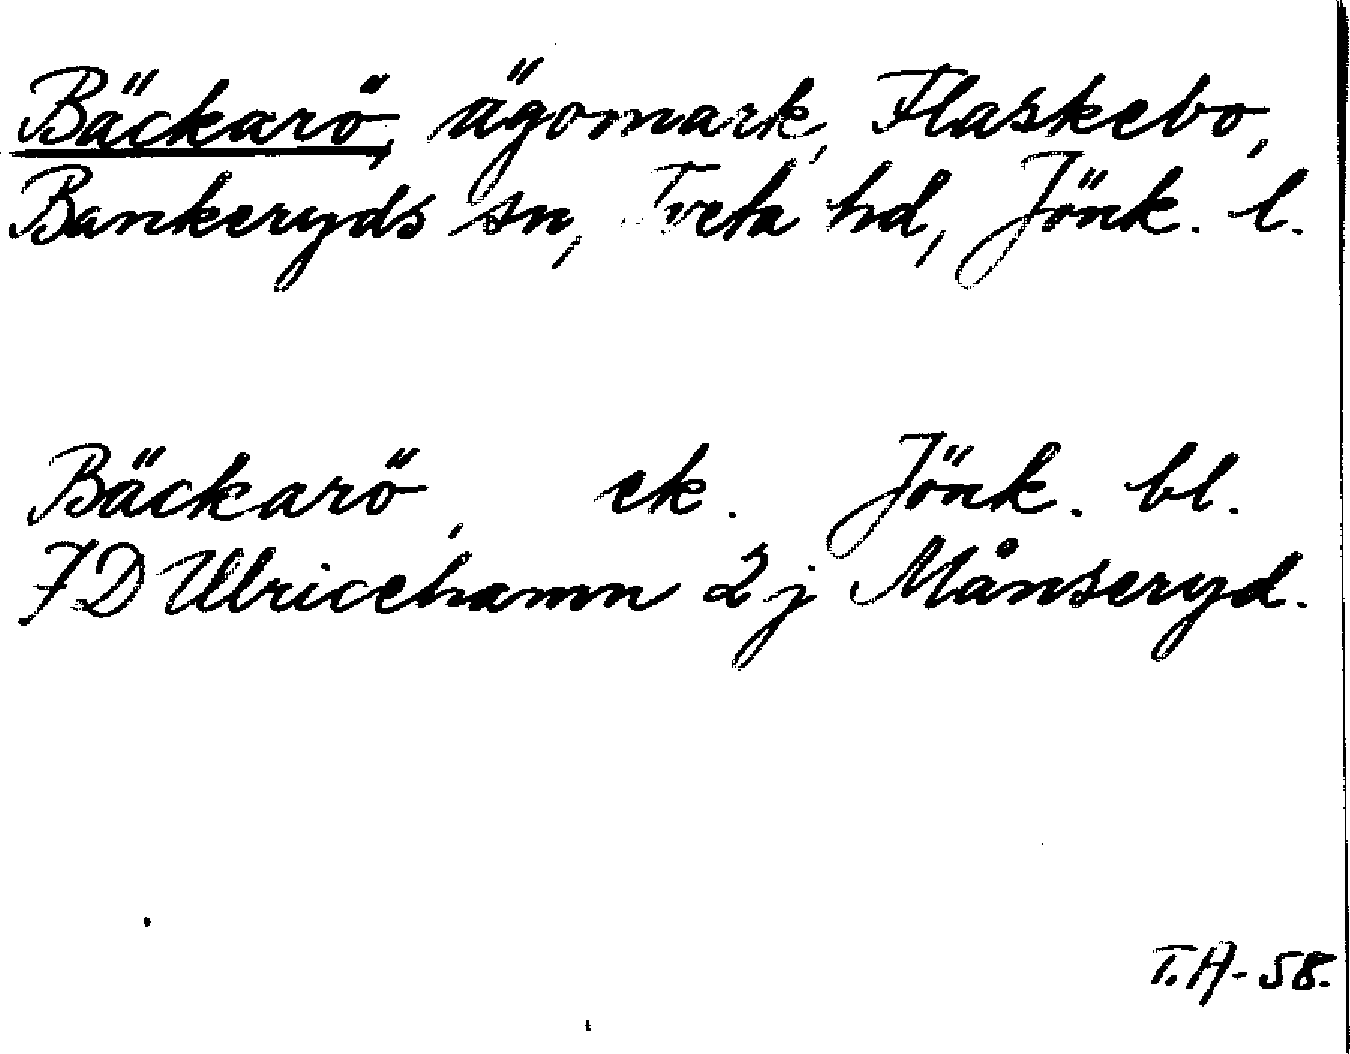 Bäckarö, ägomark, Flaskebo,
Bankeryds sn, Tveta hd, Jönk. l.
Bäckarö, ek. Jönk. bl.
7D Ulricehamn 2j Månseryd.
T.A-58.